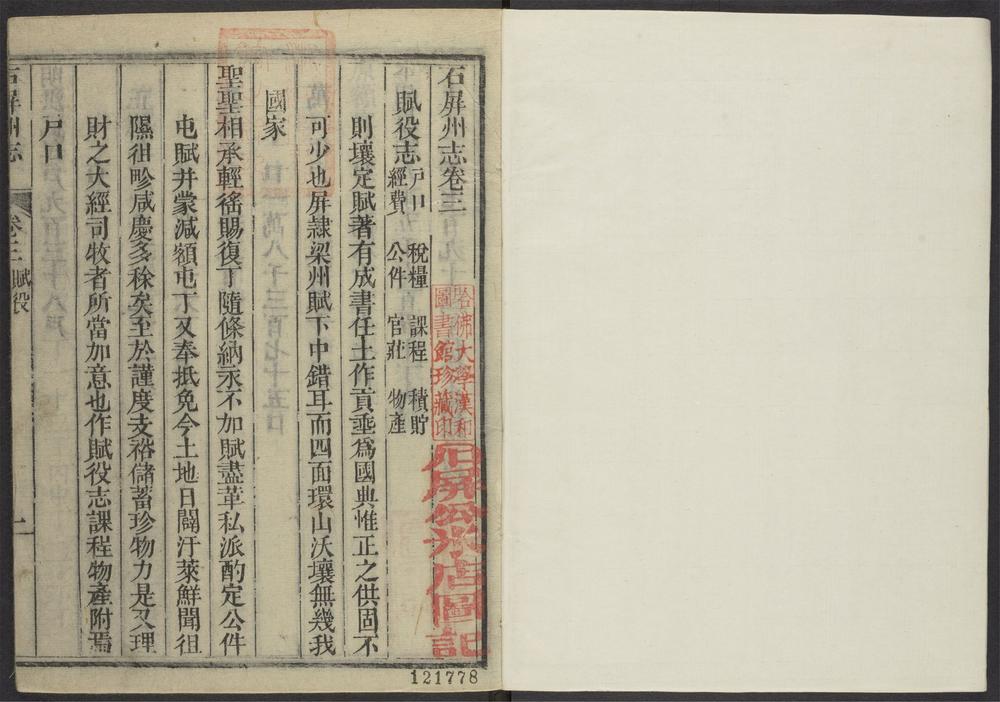 石屏州志卷三
賦役志 戶口 稅糧 課程 積貯
經費 公件 官莊 物產
則壤定賦著有成書任土作貢垂為國典惟正之供固不
可少也屏隸梁州賦下中錯耳而四面環山沃壤無幾我
國家
聖聖相承輕徭賜復丁隨條納永不加賦盡革私派酌定公件
屯賦井蒙減額屯丁又奉抵免今土地日闢汙萊鮮聞徂
隰徂畛咸慶多稌矣至於謹度支裕儲蓄珍物力是又理
財之大經司牧者所當加意也作賦役志課程物產附焉
戶口
石屏州志 卷三 賦役 一
哈佛大學漢和
圖書館珍藏印
石屏
圖記
121778